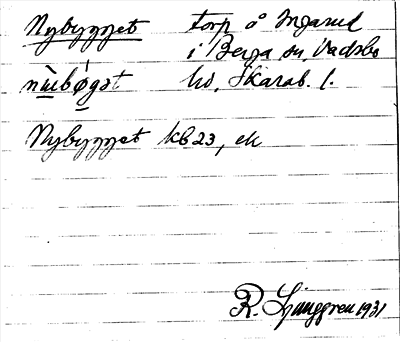 Nybygget torp å Ingarud
i Berga sn, Vadsbo
nubøgət hd, Skarab. l.
Nybygget kb 23, ek
R. Ljunggren 1931